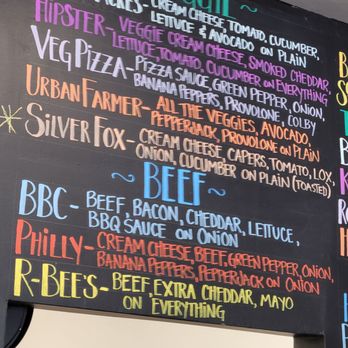 - CREAM CHEESE, TOMATO, CUCUMBER,
LETTUCE & AVOCADO ON PLAIN
HIPSTER - VEGGIE CREAM CHEESE, SMOKED CHEDDAR,
LETTUCE, TOMATO, CUCUMBER ON EVERYTHING
VEG PIZZA - PIZZA SAUCE, GREEN PEPPER, ONION,
BANANA PEPPERS, PROVOLONE, COLBY
URBAN FARMER - ALL THE VEGGIES, AVOCADO,
PEPPERJACK, PROVOLONE ON PLAIN
SILVER FOX - CREAM CHEESE, CAPERS, TOMATO, LOX,
ONION, CUCUMBER ON PLAIN (TOASTED)
~ BEEF ~
BBC - BEEF, BACON, CHEDDAR, LETTUCE,
BBQ SAUCE ON ONION
PHILLY - CREAM CHEESE, BEEF, GREEN PEPPER, ONION,
BANANA PEPPERS, PEPPERJACK ON ONION
R-BEE'S - BEEF, EXTRA CHEDDAR, MAYO
ON EVERYTHING